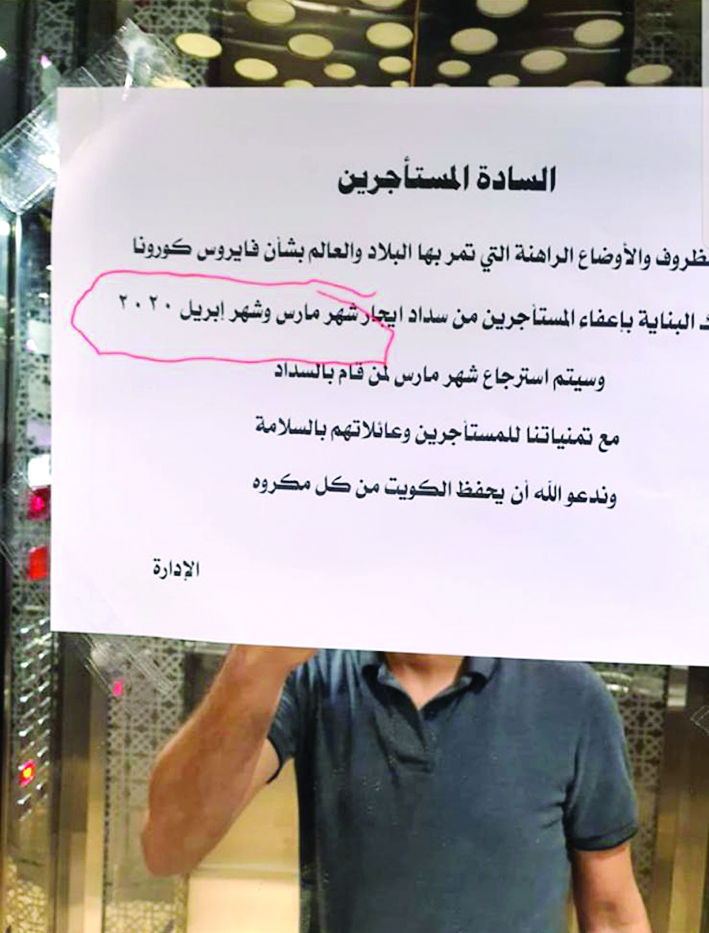 السادة المستأجرين
والأوضاع الراهنة التي تمر بها البلاد والعالم بشأن فايروس كورونا
البناية بإعفاء المستأجرين من سداد ايجار شهر مارس وشهر إبريل ٢٠٢٠
وسيتم استرجاع شهر مارس لمن قام بالسداد
مع تمنياتنا للمستأجرين وعائلاتهم بالسلامة
وندعو الله أن يحفظ الكويت من كل مكروه
الإدارة